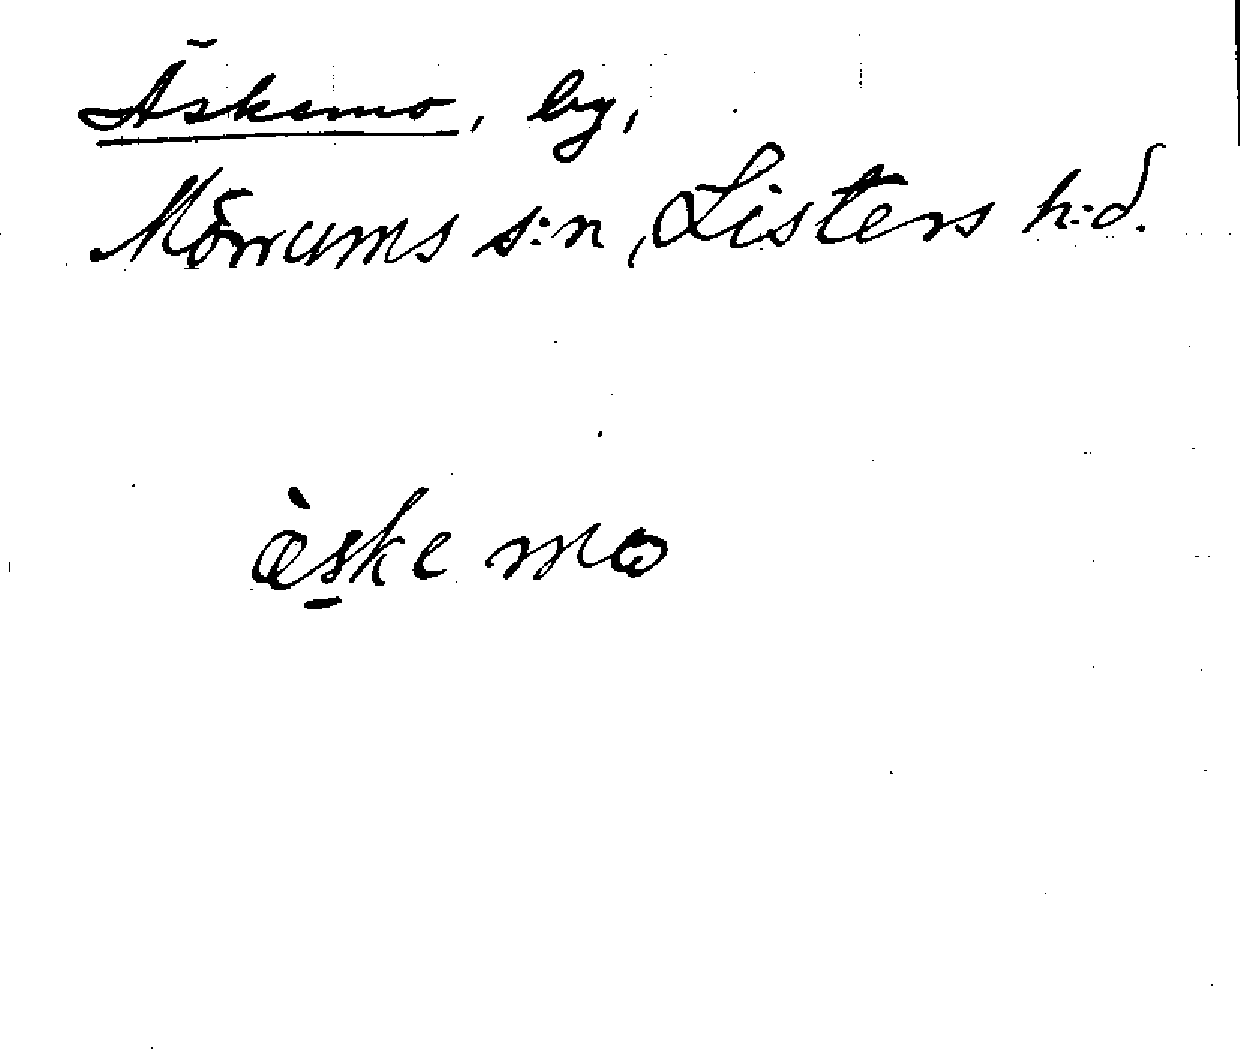 Äskemo, by,
Mörrums s:n, Listers h:d.
æ̀ske mo